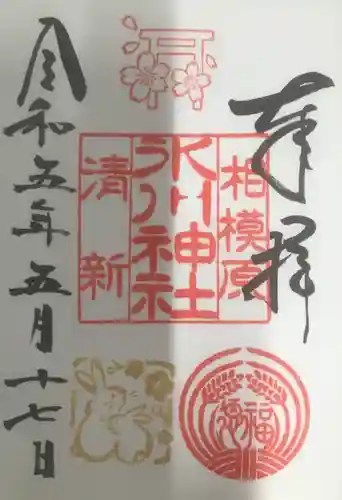 奉拝
相模原
氷川神社
清新
令和五年五月十七日
福